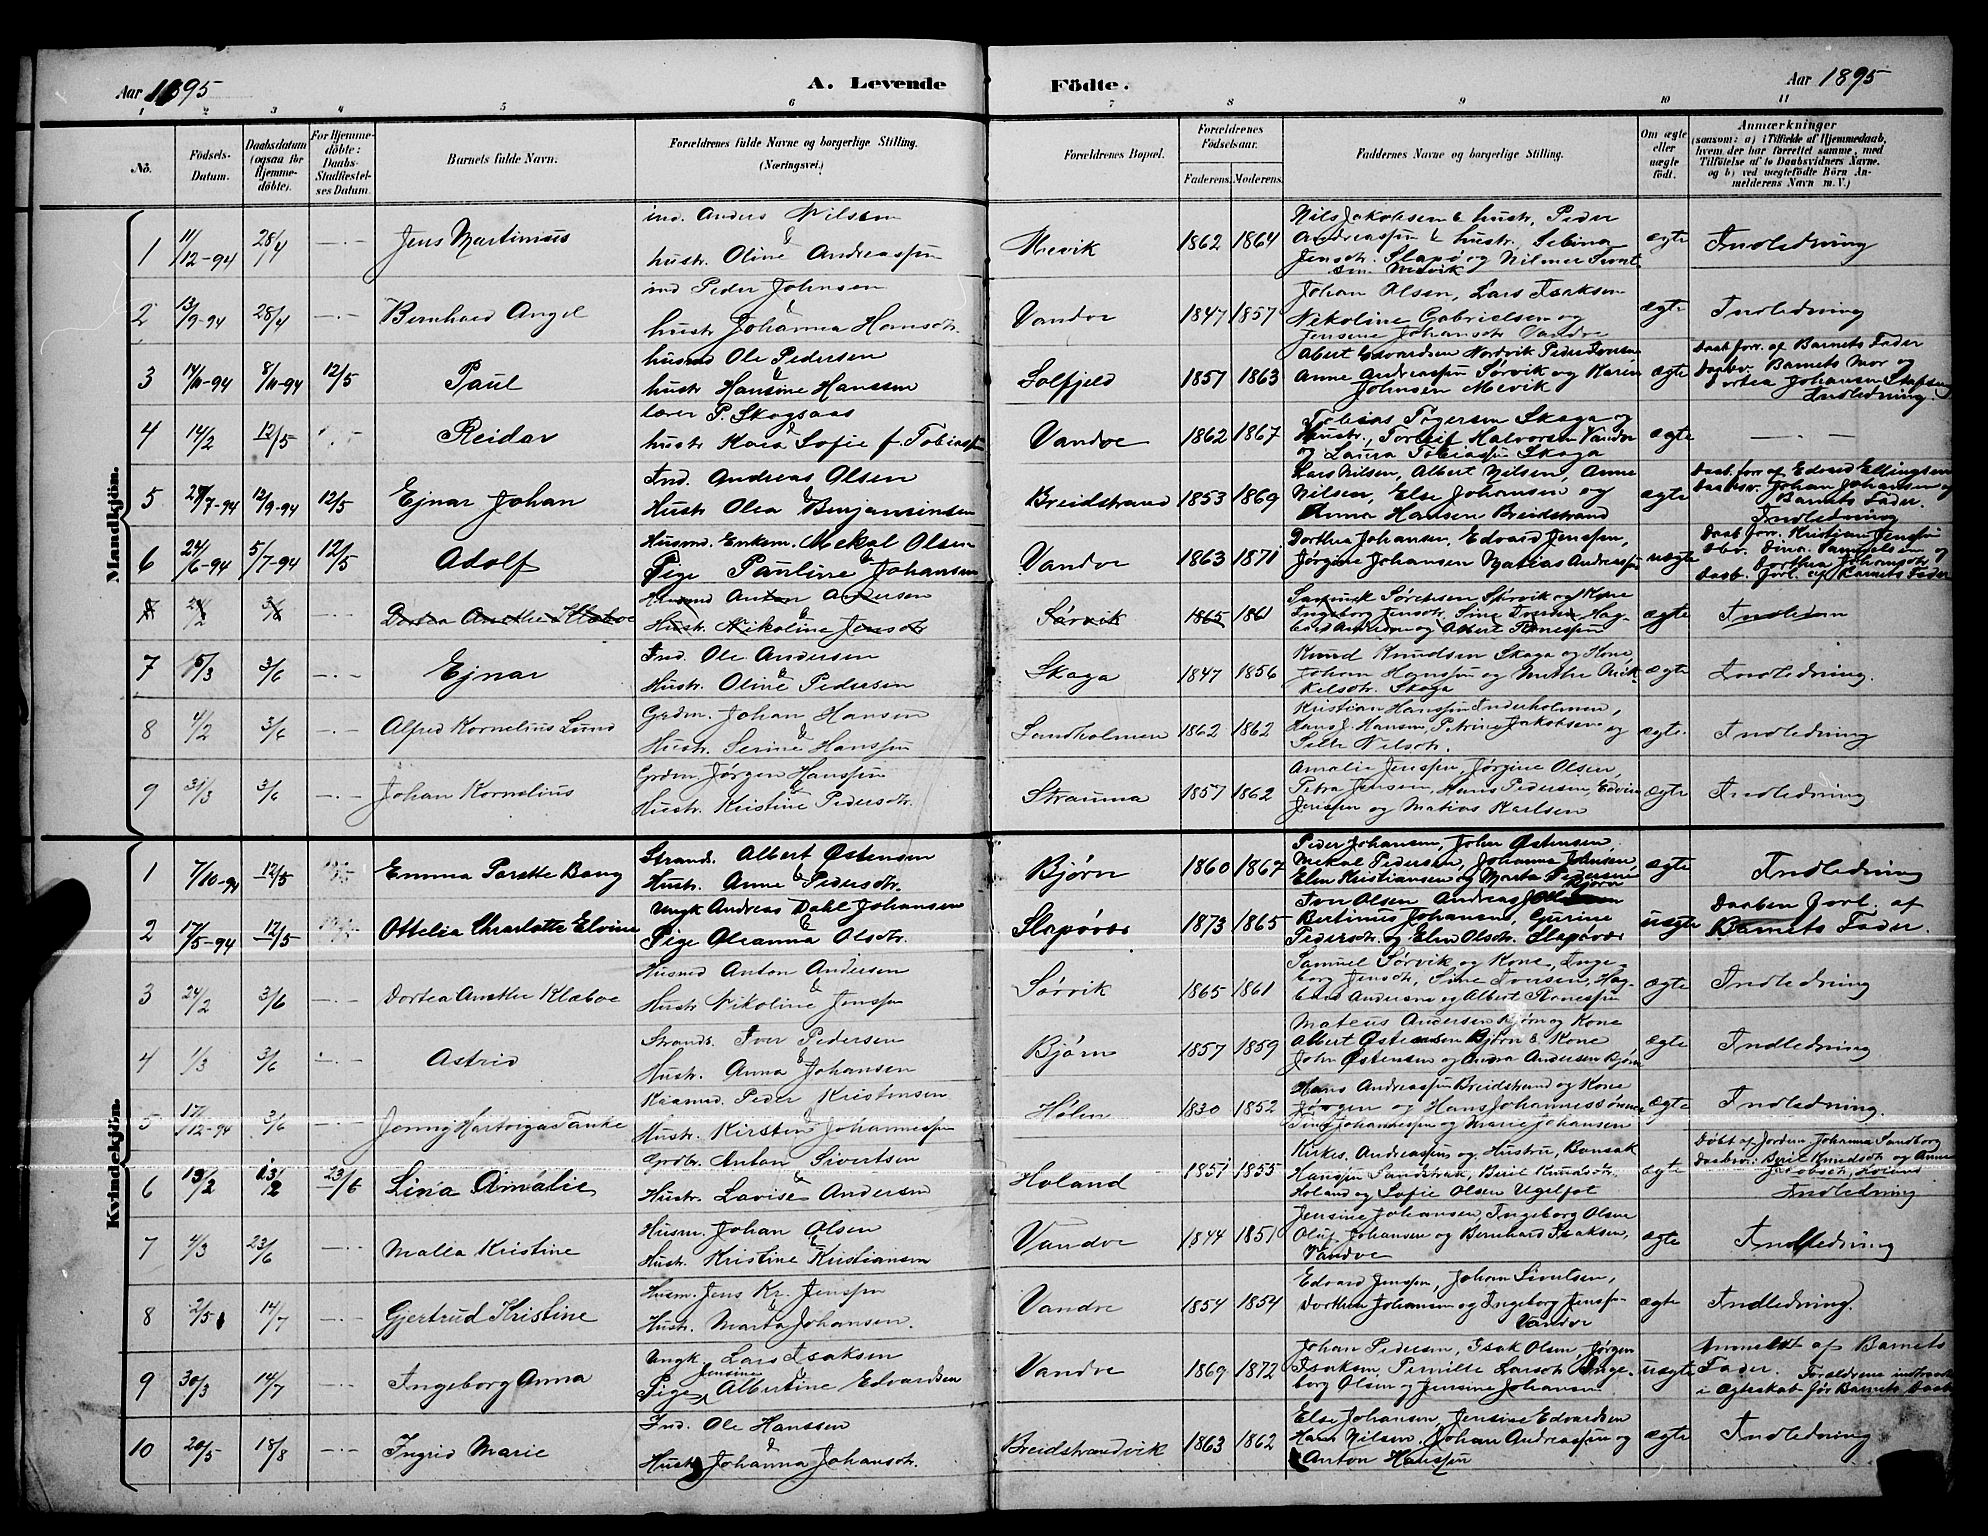 Aar 1895
A. Levende Födte.
Aar 1895
1 2 3 4 5 6 7 8 9 10 11
No.
Födsels-Datum.
Daabsdatum (ogsaa for Hjemmedöbte).
For Hjemmedöbte: Daabs-Stadfæstelses Datum.
Barnets fulde Navn.
Forældrenes fulde Navne og borgerlige Stilling. (Næringsvei.)
Forældrenes Bopæl.
Forældrenes Födselsaar.
Faderens. Moderens.
Faddernes Navne og borgerlige Stilling.
Om ægte eller uægte födt.
Anmærkninger
(saasom: a) i Tilfælde af Hjemmedaab, hvem der har forrettet samme, med Tilföielse af to Daabsvidners Navne, og b) ved uægtefödte Börn Anmelderens Navn m. V.)
Mandkjön.
1 11/12-94 28/4 —.— Jens Martinius
ind. Anders Nilsen & hustr. Oline Andreassen
Mevik 1862 1864
Nils Jakobsen & hustr., Peder
Andreassen & hustr. Sebina
Jensdtr. Slapø og Hilmer Sivert
sen Mevik
ægte Indledning
2 13/9-94 28/4 —.— Bernhard Angel
ind Peder Johnsen & hustr Johanna Hansdtr.
Vandve 1847 1857
Johan Olsen, Lars Isaksen
Nikoline Gabrielsen og
Jensine Johansdtr Vandve
ægte Indledning
3 14/10-94 8/11-94 12/5 Paul
husmd Ole Pedersen & hustr Hansine Hanssen
Solfjeld 1857 1863
Abert Edvardsen Nordvik Peder Iversen
Anne Andreassen Sørvik og Karen
Johnsen Mevik
ægte
Daab forr. af Barnets Fader
Daabsv. Barnets Mor og
Dortea Johansen
Indledning.
4 14/2 12/5 Reidar
Lærer P. Skogsaas & hustr Kaia Sofie f. Tobiassen
Vandve 1862 1867
Tobias Togersen Skaga og
Hustr., Torleif Halvorsen Vandve
og Laura Tobiassen Skaga
ægte — — —
5 27/7-94 12/9-94 12/5 Ejnar Johan
Ind. Andreas Olsen & Hustr Olea Benjaminsen
Breidstrand 1853 1869
Lars Nilsen, Albert Nilsen, Anne
Nilsen, Else Johansen og
Anna Hansen Breidstrand
ægte
Daab. forr. af Edvard Ellingsen
Daabsv. Johan Johansen og
Barnets Fader.
Indledning
6 24/6-94 5/7-94 12/5 Adolf
Husmd. Enkem. Mekal Olsen & Pige Pauline Johansen
Vandve 1863 1871
Dorthea Johansen, Edvard Jenssen,
Jørgine Johansen Matias Andreassen
uægte
Daab forr. Kristian Jenssen
Dbv. Dina Samuelsen og
Dorthea Johansdtr
Daab. forl. af Barnets Fader
7 24/2 3/6 Dortea Anethe Klæboe
Husmd Anton Andersen & Hustr. Nikoline Jensdtr
Sørvik 1865 1861
Samuel Sørensen Sørvik og Kone
Ingeborg Jensdtr. Sine Iversen Hag-
bart Andersen og Albert Tønessen
ægte Indledning
7 5/3 3/6 —.— Ejnar
Ind. Ole Andersen & Hustr. Oline Pedersen
Skaga 1847 1856
Knud Knudsen Skaga og Kone
Johan Hanssen og Mathe Erik-
kelsdtr. Skaga
ægte Indledning.
8 4/2 3/6 —.— Alfred Kornelius Lund
Grdm. Johan Hansen & Hustr. Serine Hanssen
Sandholmen 1862 1862
Kristian Hanssen Inderholmen,
Hans J. Hansen, Petrine Jakobsen og
Nilsdtr.
ægte. Indledning
9 31/3 3/6 —.— Johan Kornelius
Grdm Jørgen Hanssen & Hustr. Kristine Pedersdtr.
Strauma 1857 1862
Amalie Jenssen, Jørgine Olsen,
Petra Jensen, Hans Pedersen, Edvin
Jenssen og Matias Karlsen
ægte Indledning
Kvindekjön.
1 7/10-94 12/5 Emma Parelte Bang
Strands. Albert Østensen & Hustr. Anne Pedersdtr.
Bjørn 1860 1867
Peder Johansen, John Østensen,
Mekal Pedersen, Johanna Johnsen,
Elen Kristiansen og Marta Pedersen
Bjørn
ægte Indledning
2 17/5-94 12/5 Ottelia Chrarlotte Elvine
Ungk Andreas Dahl Johansen & Pige Oleanna Olsdtr.
Slapøvær 1873 1865
Ion Olsen Andreas
Bertinius Johansen, Gurine
Pedersdtr. og Elen Olsdtr. Slapøvær
uægte
Daaben forl. af
Barnets Fader.
3 24/2 3/6 —.— Dortea Anethe Klæboe
Husmd Anton Andersen & Hustr. Nikoline Jenssen
Sørvik 1865 1861
Samuel Sørvik og Kone, Inge-
borg Jensdtr, Sine Iversen, Hag-
bart Andersen og Albert Tønessen
ægte Indledning
4 1/3 3/6 —.— Astrid
Strands. Iver Pedersen & Hustr. Anna Johansen
Bjørn 1857 1859
Mateus Andersen Bjørn og Kone
Albert Østensen Bjørn & Kone
John Østensen og Anna Andersen Bjørn
ægte Indledning
5 17/12-94 3/6 —.— Jenny Hartviga Tanke
Kaarmd. Peder Kristensen & Hustr. Kirsten Johannessen
Holm 1830 1852
Hans Andreassen Breidstrand og Kone
Jørgen og Hans Johannessønner
Johannessen og Marie Johansen
ægte Indledning.
6 13/2 13/2 23/6 Lina Amalie
Grdbr. Anton Sivertsen & Hustr. Lovise Andersen
Holand 1851 1855
Kirkes. Andreassen og Hustru, Bonsak
Hanssen Sandstrak, Beril Knudsdtr.
Holand og Sofie Olsen Ugelfot
ægte
Døbt af Jordem Johanna Sandberg
Daabsv.: Beril Knudsdtr og Anne
Jakobsdtr, Holand
Indledning
7 4/3 23/6 —.— Malla Kristine
Husm. Johan Olsen & Hustr. Kristine Kristiansen
Vandve 1844 1851
Jensine Johansen, Ingeborg Olsen
Oluf Johansen og Bernhard Isaksen,
Vandve
ægte Indledning
8 2/5 14/7 —.— Gjertrud Kristine
Husm. Jens Kr. Jenssen & Hustr. Marta Johansen.
Vandve 1854 1854
Edvard Jenssen, Johan Sivertsen,
Dorthea Johansen og Ingeborg Jenssen
Vandve
ægte Indledning.
9 30/3 14/7 —.— Ingeborg Anna
Ungk Lars Isaksen & Pige Jensine Albertine Edvardsen
Vandve 1869 1872
Johan Pedersen, Isak Olsen, Jørgen
Isaksen, Pernille Larsdtr, Inge-
borg Olsen og Jensine Johansen
uægte
Anmeldt af Barnets
Fader. Forældrene indtraadte
i Ægteskab før Barnets Daab
10 20/5 18/8 —.— Ingrid Marie
Ind. Ole Hanssen & Hustr Johanna Johansdtr.
Breidstrandvik 1863 1862
Else Johansen, Jensine Edvardsen
Hans Nilsen, Johan Andreassen og
Anton Hanssen
ægte Indledning